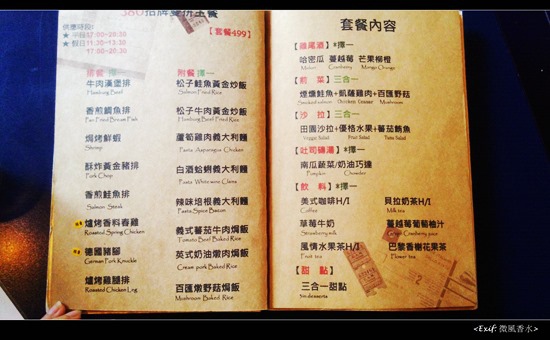 380招牌雙拼主餐
供應時段:
【套餐499】
★ 平日17:00~20:30
★ 假日11:30~13:30
17:00~20:30
排餐 擇一
牛肉漢堡排
Hamburg Beef
香煎鯛魚排
Pan Fried Bream Fish
焗烤鮮蝦
Shrimp
酥炸黃金豬排
Pork Chop
香煎鮭魚排
Salmon Steak
爐烤香料春雞
Roasted Spring Chicken
德國豬腳
German Pork Knuckle
爐烤雞腿排
Roasted Chicken Leg
附餐 擇一
松子鮭魚黃金炒飯
Salmon Fried Rice
松子牛肉黃金炒飯
Hamburg Beef Fried Rice
蘆筍雞肉義大利麵
Pasta Asparagus Chicken
白酒蛤蜊義大利麵
Pasta White wine Clams
辣味培根義大利麵
Pasta Spice Bacon
義式蕃茄牛肉焗飯
Tomato Beef Baked Rice
英式奶油燉肉焗飯
Cream pork Baked Rice
百匯燉野菇焗飯
Mushroom Baked Rice
套餐內容
【雞尾酒】*擇一
哈密瓜 蔓越莓 芒果柳橙
Midori Cranberry Mango Orange
【前菜】三合一
煙燻鮭魚+凱薩雞肉+百匯野菇
Smoked salmon Chicken Ceaser Mushroom
【沙拉】三合一
田園沙拉+優格水果+蕃茄鮪魚
Veggie Salad Fruit Salad Tuna Salad
【吐司磚湯】*擇一
南瓜蔬菜/奶油巧達
Pumpkin Chowder
【飲料】*擇一
美式咖啡H/I 貝拉奶茶H/I
Coffey Milk tea
草莓牛奶 蔓越莓葡萄柚汁
Strawberry milk Grape Cranberry juice
風情水果茶H/I 巴黎香榭花果茶
Fruit tea Flower tea
【甜點】
三合一甜點
Sin desserts
<Exif: 微風香水>